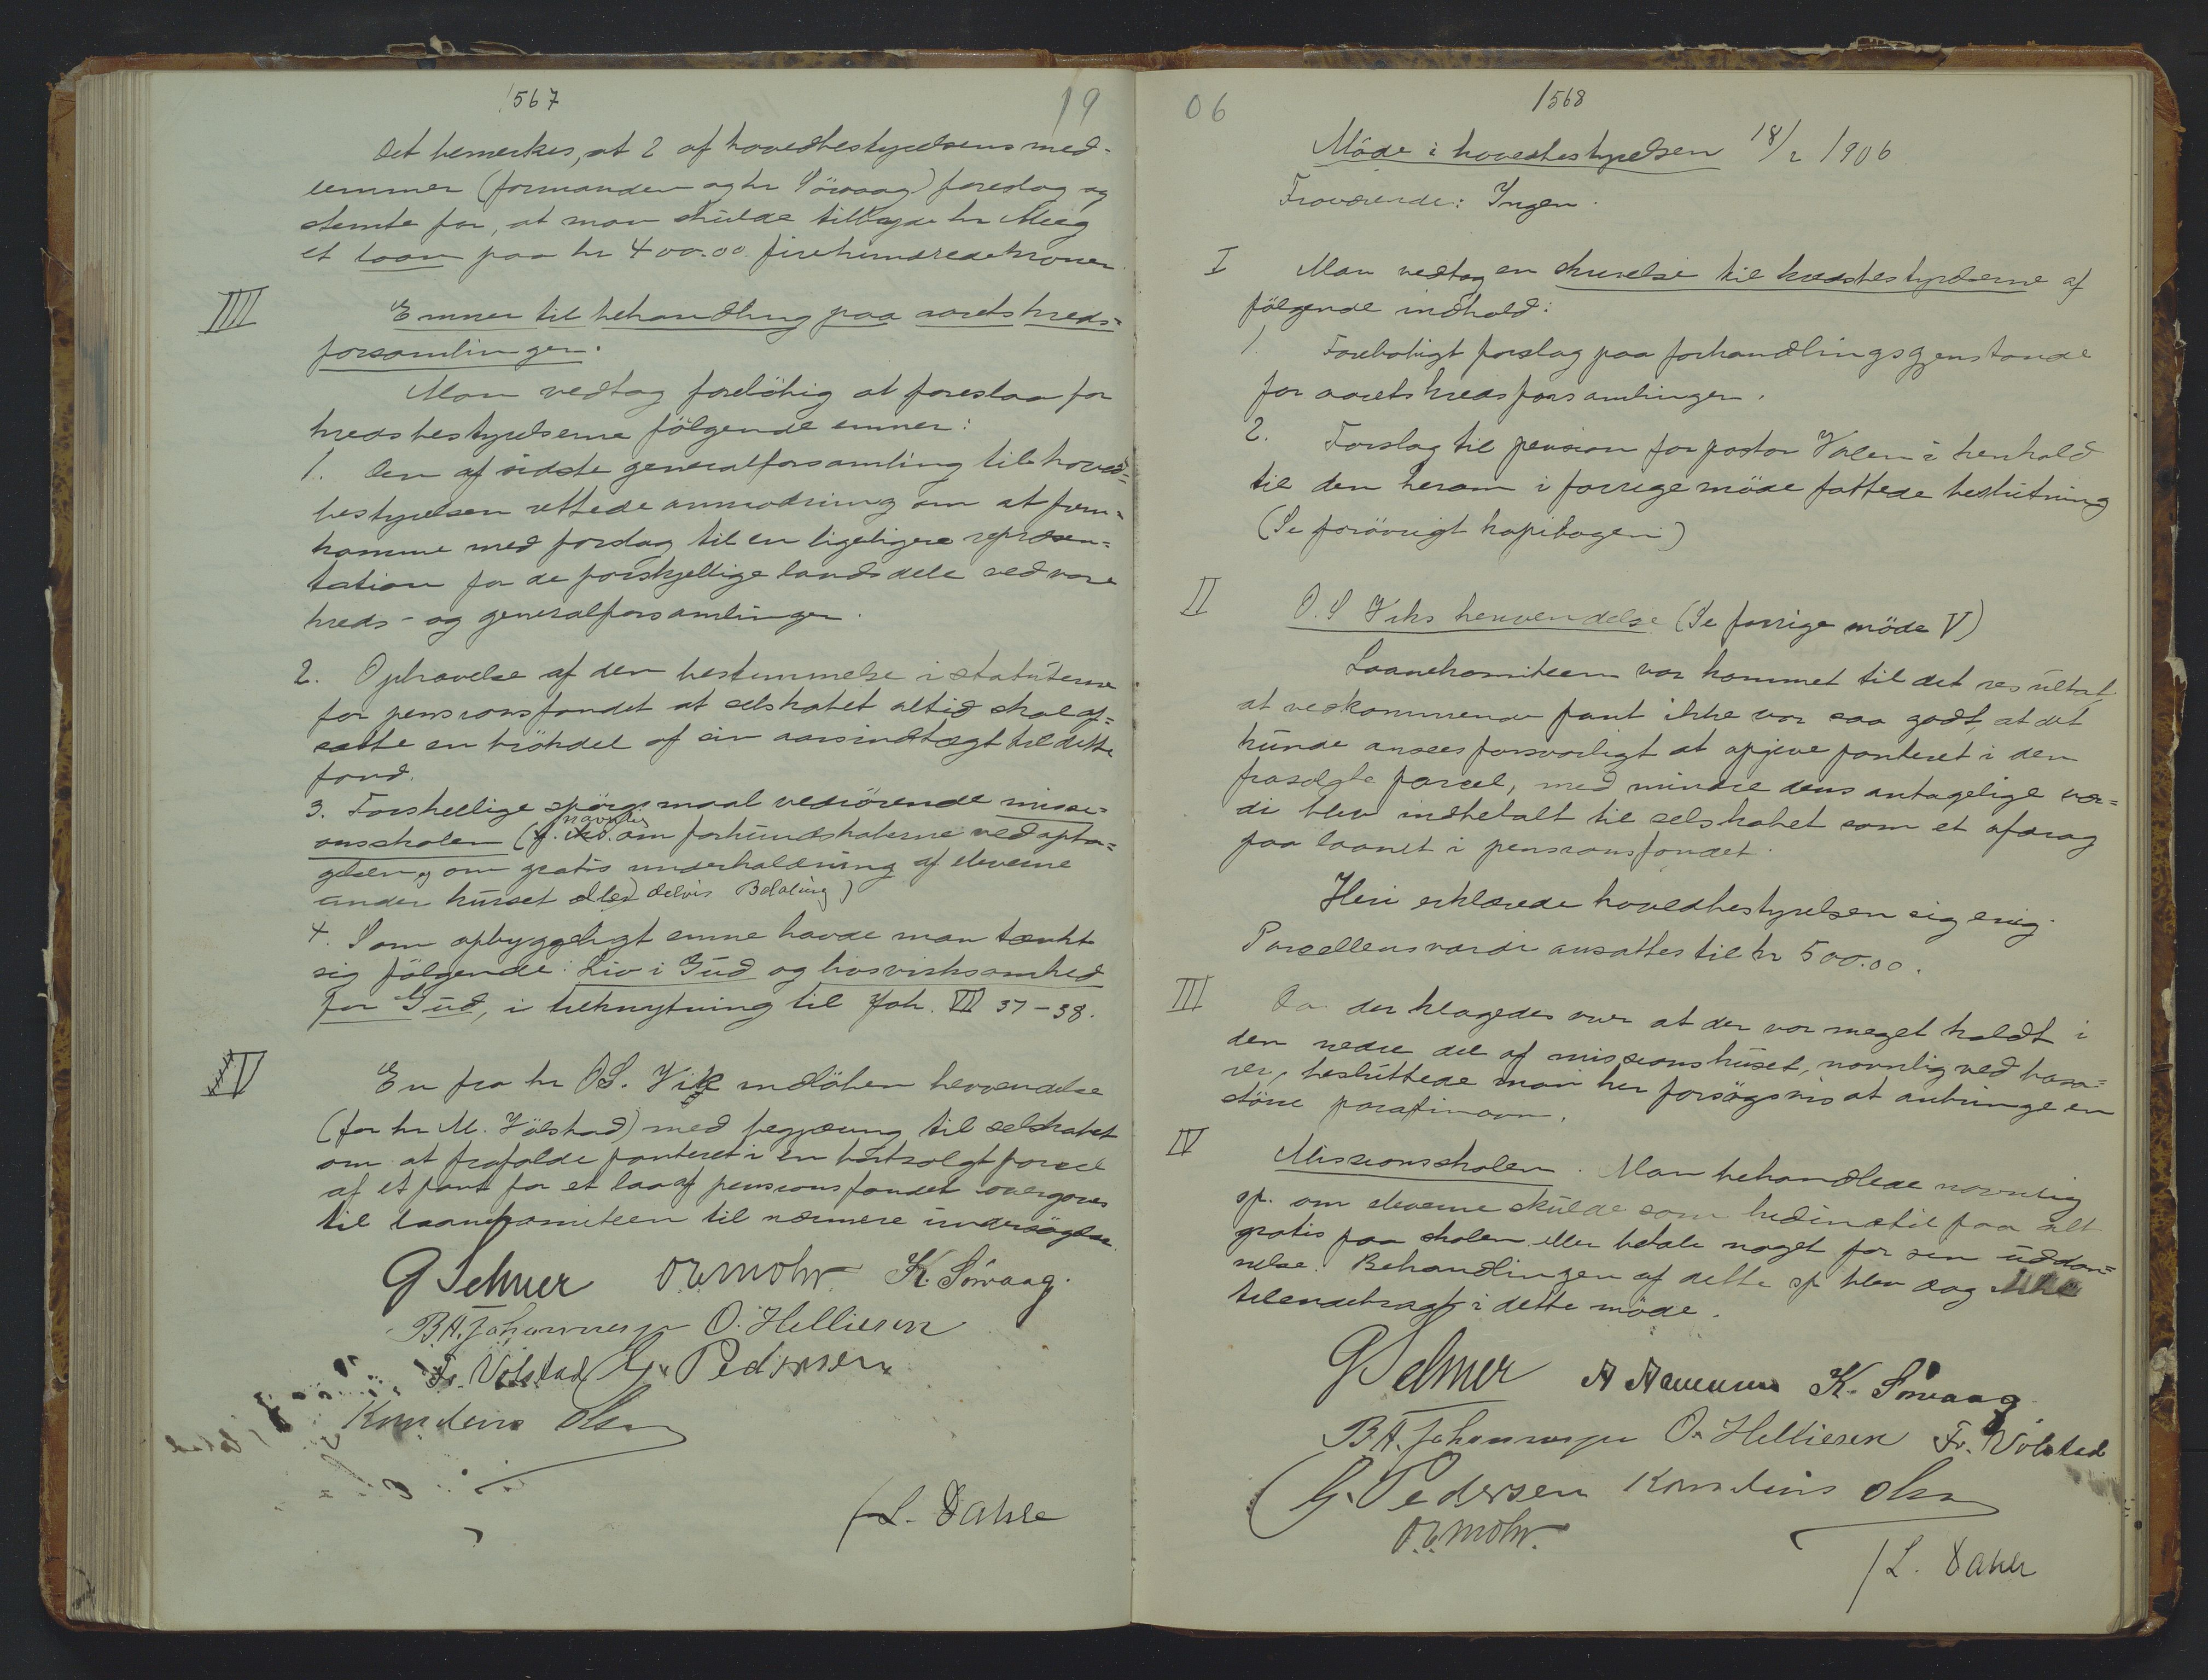 1567
19
Det bemerkes, at 2 af hovedbestyrelsens med-
lemmer (formanden og hr Sövaag) foreslog og
stemte for, at man skulde tilbyde hr Meeg
et laan paa kr 400.00 firehundredekroner.
IIII
Emner til behandling paa aarets kreds=
forsamlinger.
Man vedtog foreløbig at foreslaa for
kredsbestyrelserne følgende emner:
1. Den af sidste generalforsamling til hoved=
bestyrelsen rettede anmodning om at frem=
komme med forslag til en ligeligere repræsen=
tation for de forskjellige landsdele ved vore
kreds- og generalforsamlinger.
2. Ophævelse af den bestemmelse i statuterne
for pensionsfondet at selskabet altid skal af=
sætte en brökdel af sin aarsindtægt til dette
fond.
3. Forskellige spörgsmaal vedrörende missi=
onsskolen (navnlig om forkundskaberne ved opta=
gelsen, om gratis underholdning af eleverne
under kurset eller delvis Betaling)
4. Som opbyggeligt emne havde man tænkt
sig fölgende: Liv i Gud og livsvirksomhed
for Gud, i tilknytning til Joh. VII 37-38.
V
En fra hr O.S. Vik indløben henvendelse
(for hr M. Völstad) med begjæring til selskabet
om at frafalde panteret i en bortsolgt parcel
af et pant for et laan af pensionsfondet overgaves
til laanekomiteen til nærmere undersögelse.
G Selmer O.E. Mohn K. Sövaag.
B.A. Johannesen O. Helliesen
Fr. Völstad G. Pedersen
Konstens Olsen
/L. Dahle
06
1568
Möde i hovedbestyrelsen 18/2 1906
Fraværende: Ingen.
I Man vedtog en skrivelse til kredsbestyrelserne af
fölgende indhold:
1. Forelöbigt forslag paa forhandlingsgjenstande
for aarets kredsforsamlinger.
2. Forslag til pension for pastor Valen i henhold
til den herom i forrige möde fattede beslutning
(Se forövrigt kopibogen)
II O. S Viks henvendelse (Se forrige möde V)
Laanekomiteen var kommet til det resultat,
at vedkommende pant ikke var saa godt, at det
kunde ansees forsvarligt at opgive panteret i den
frasolgte parcel, med mindre dens antagelige vær=
di blev indbetalt til selskabet som et afdrag
paa laanet i pensionsfondet.
Heri erklærede hovedbestyrelsen sig enig.
Parcellens værdi ansattes til kr 500.00.
III Da der klagedes over at der var meget koldt i
den nedre del af missionshuset, navnlig ved basa=
rer, besluttede man her forsögsvis at anbringe en
större parafinovn.
IV Missionsskolen. Man behandlede navnlig
sp. om eleverne skulde som hidindtil faa alt
gratis paa skolen eller betale noget for sin uddan=
nelse. Behandlingen af dette sp blev dog ikke
tilendebragt i dette möde.
G Selmer K. Sövaag
B.A. Johannesen O. Helliesen Fr. Völstad
G. Pedersen Konstens Olsen
O.E. Mohn.
/L. Dahle